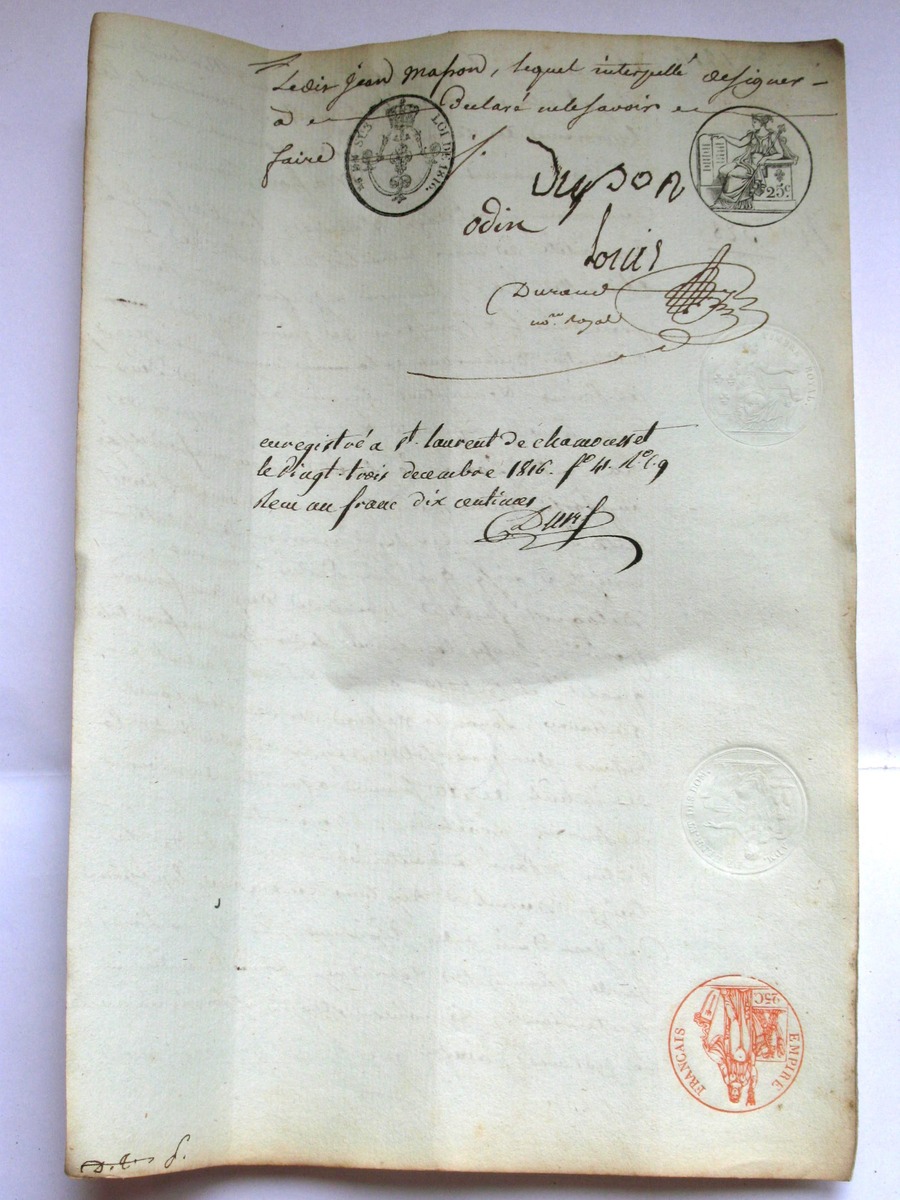 Ledit jean masson, lequel interpellé de signer
a declaré ne le savoir
faire
LOI DE 1816.
25c
Duson
odin
Louis
Durand
nore. royal
TIMBRE ROYAL.
enregistré a st. laurent de chamousset
le vingt-trois decembre 1816. fo 41. Ro c. 9
Recu un franc dix centimes
Durif
25C
EMPIRE
FRANCAIS